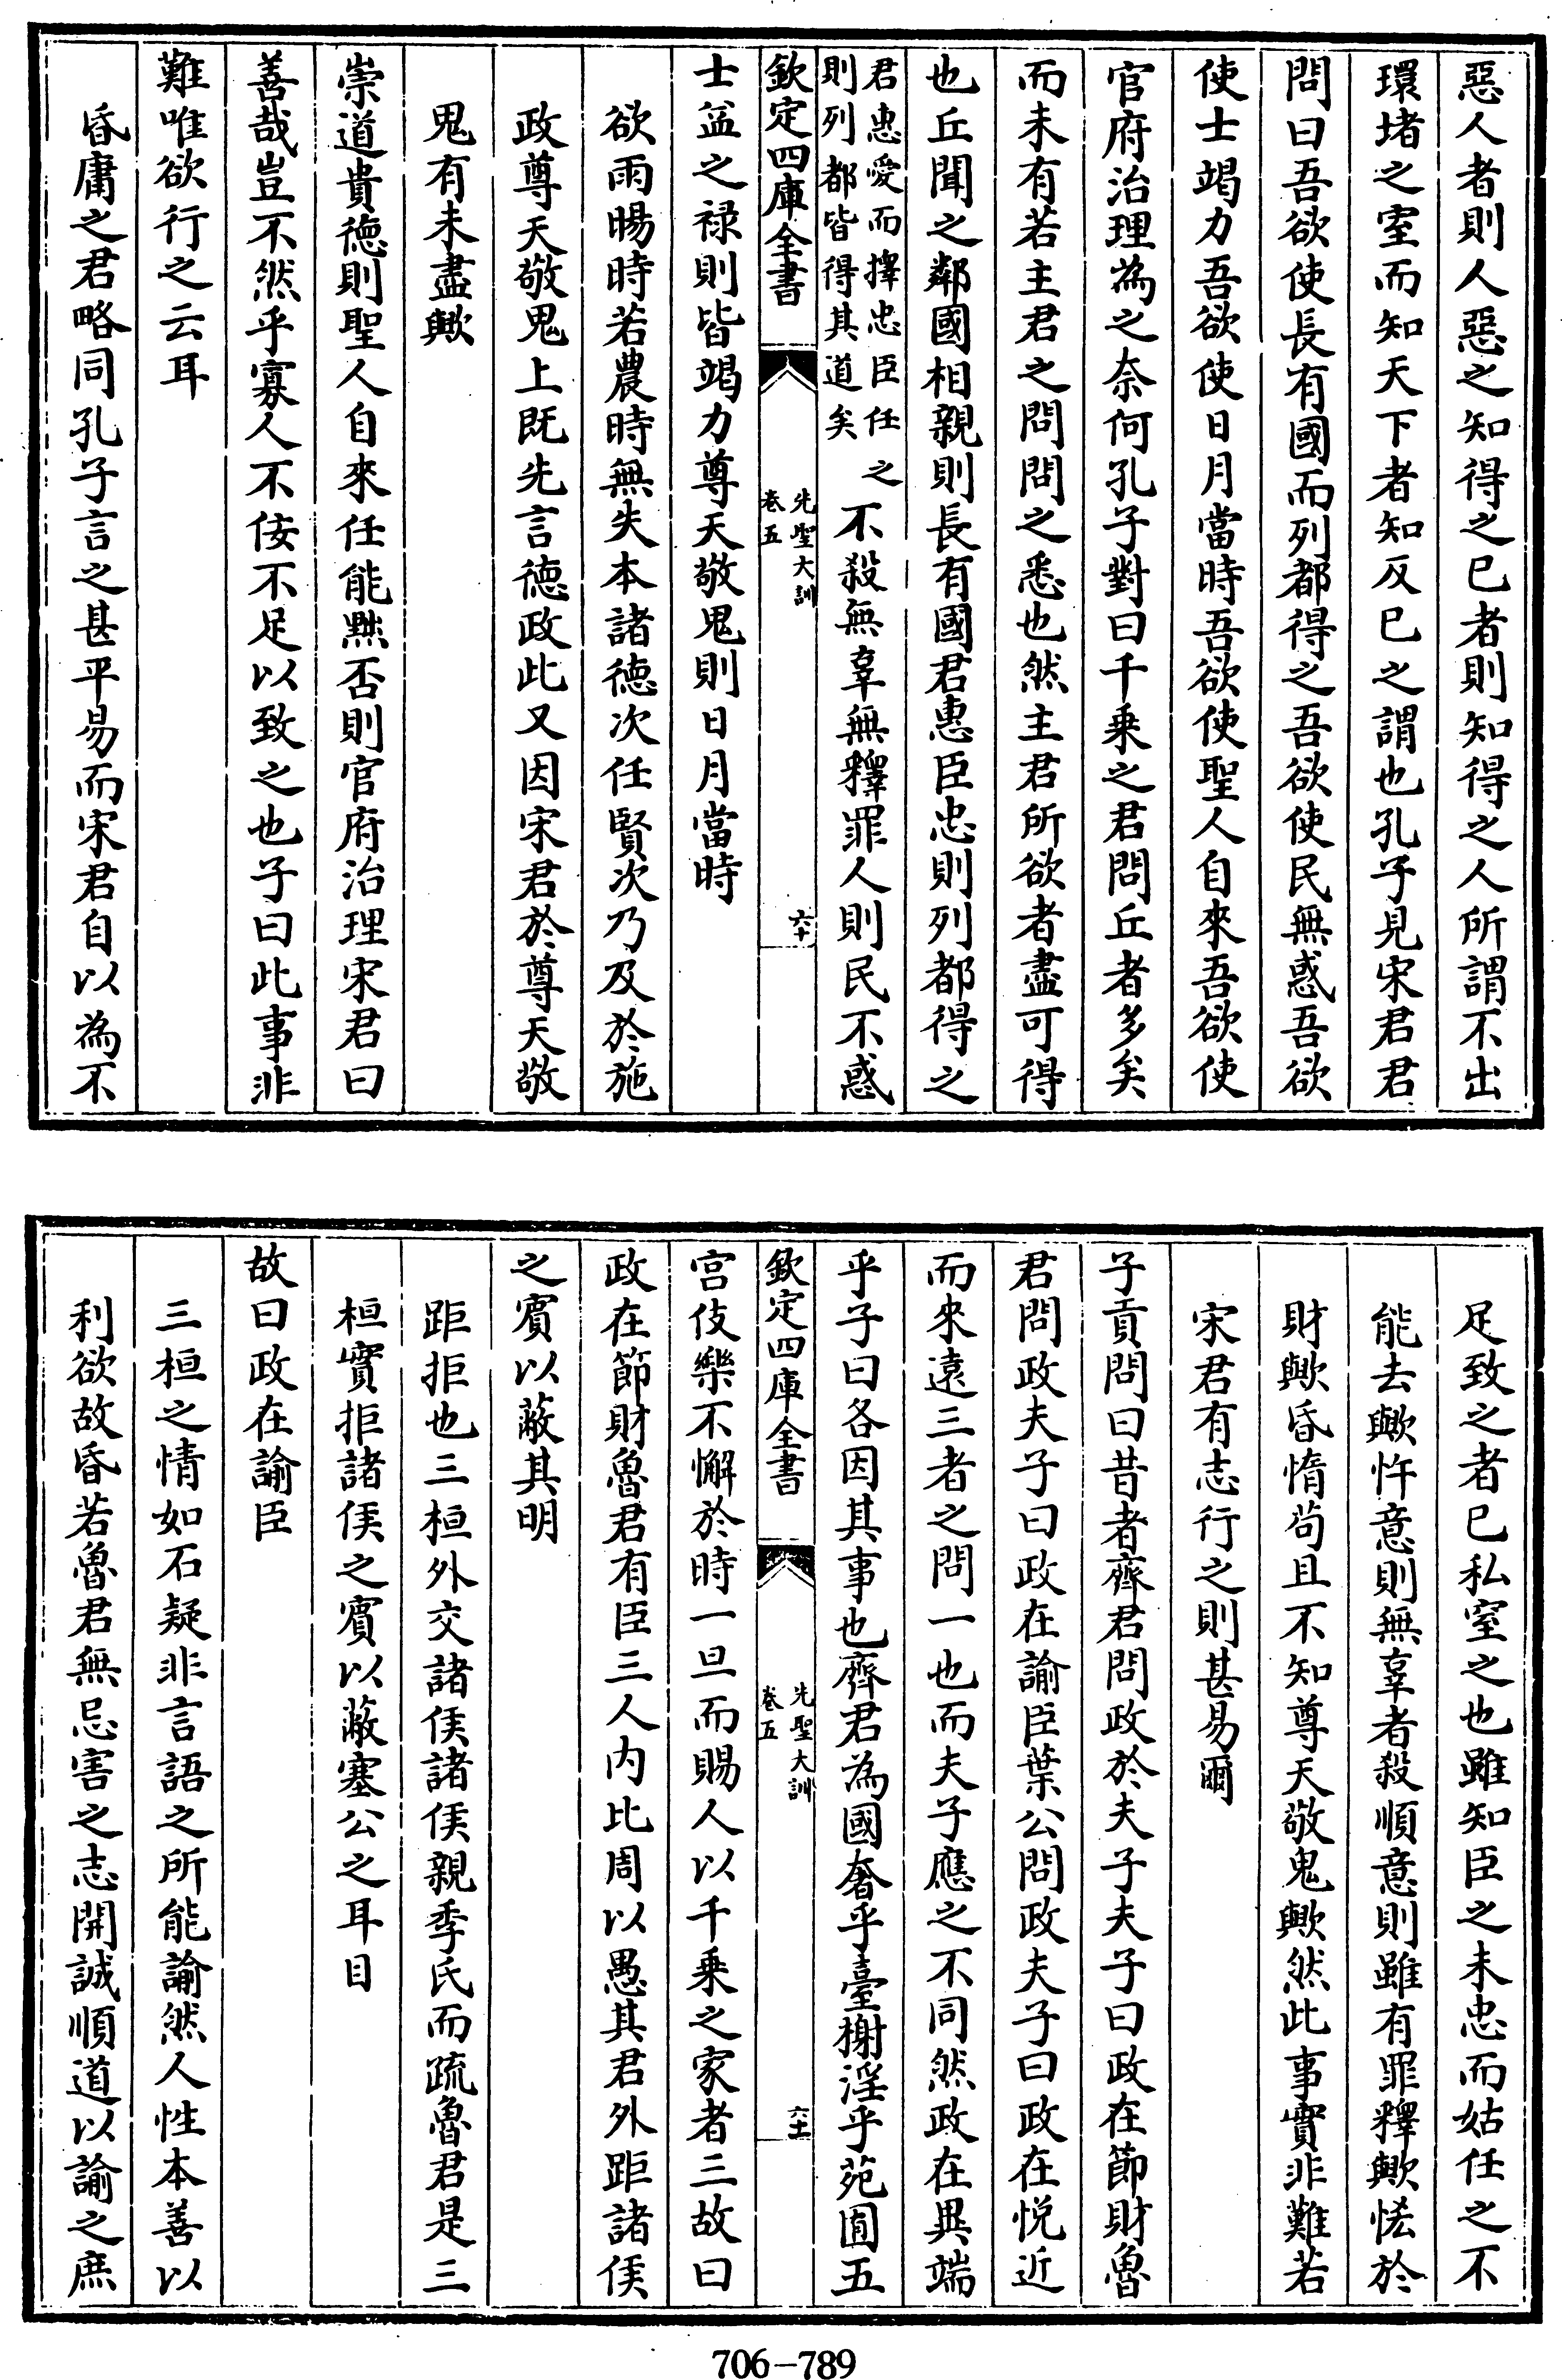 惡人者則人惡之知得之已者則知得之人所謂不出
環堵之室而知天下者知反已之謂也孔子見宋君君
問曰吾欲使長有國而列都得之吾欲使民無惑吾欲
使士竭力吾欲使日月當時吾欲使聖人自來吾欲使
官府治理為之奈何孔子對曰千乘之君問丘者多矣
而未有若主君之問問之悉也然主君所欲者盡可得
也丘聞之鄰國相親則長有國君惠臣忠則列都得之
君惠愛而擇忠臣任之
則列都皆得其道矣
不殺無辜無釋罪人則民不惑
欽定四庫全書
先聖大訓
卷五
六十
士益之禄則皆竭力尊天敬鬼則日月當時
欲雨暘時若農時無失本諸徳次任賢次乃及於施
政尊天敬鬼上既先言徳政此又因宋君於尊天敬
鬼有未盡歟
崇道貴徳則聖人自來任能黜否則官府治理宋君曰
善哉豈不然乎寡人不佞不足以致之也子曰此事非
難唯欲行之云耳
昏庸之君略同孔子言之甚平易而宋君自以為不
足致之者已私窒之也雖知臣之未忠而姑任之不
能去歟忤意則無辜者殺順意則雖有罪釋歟恡於
財歟昏惰茍且不知尊天敬鬼歟然此事實非難若
宋君有志行之則甚易爾
子貢問曰昔者齊君問政於夫子夫子曰政在節財魯
君問政夫子曰政在諭臣葉公問政夫子曰政在悅近
而來遠三者之問一也而夫子應之不同然政在異端
乎子曰各因其事也齊君為國奢乎臺榭淫乎苑囿五
欽定四庫全書
先聖大訓
卷五
六十一
宫伎樂不懈於時一旦而賜人以千乘之家者三故曰
政在節財魯君有臣三人内比周以愚其君外距諸侯
之賓以蔽其明
距拒也三桓外交諸侯諸侯親季氏而疏魯君是三
桓實拒諸侯之賓以蔽塞公之耳目
故曰政在諭臣
三桓之情如石疑非言語之所能諭然人性本善以
利欲故昏若魯君無忌害之志開誠順道以諭之庶
706-789